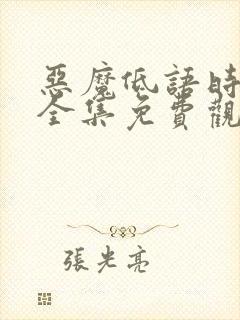 惡魔低語時
全集免費觀
張光亮